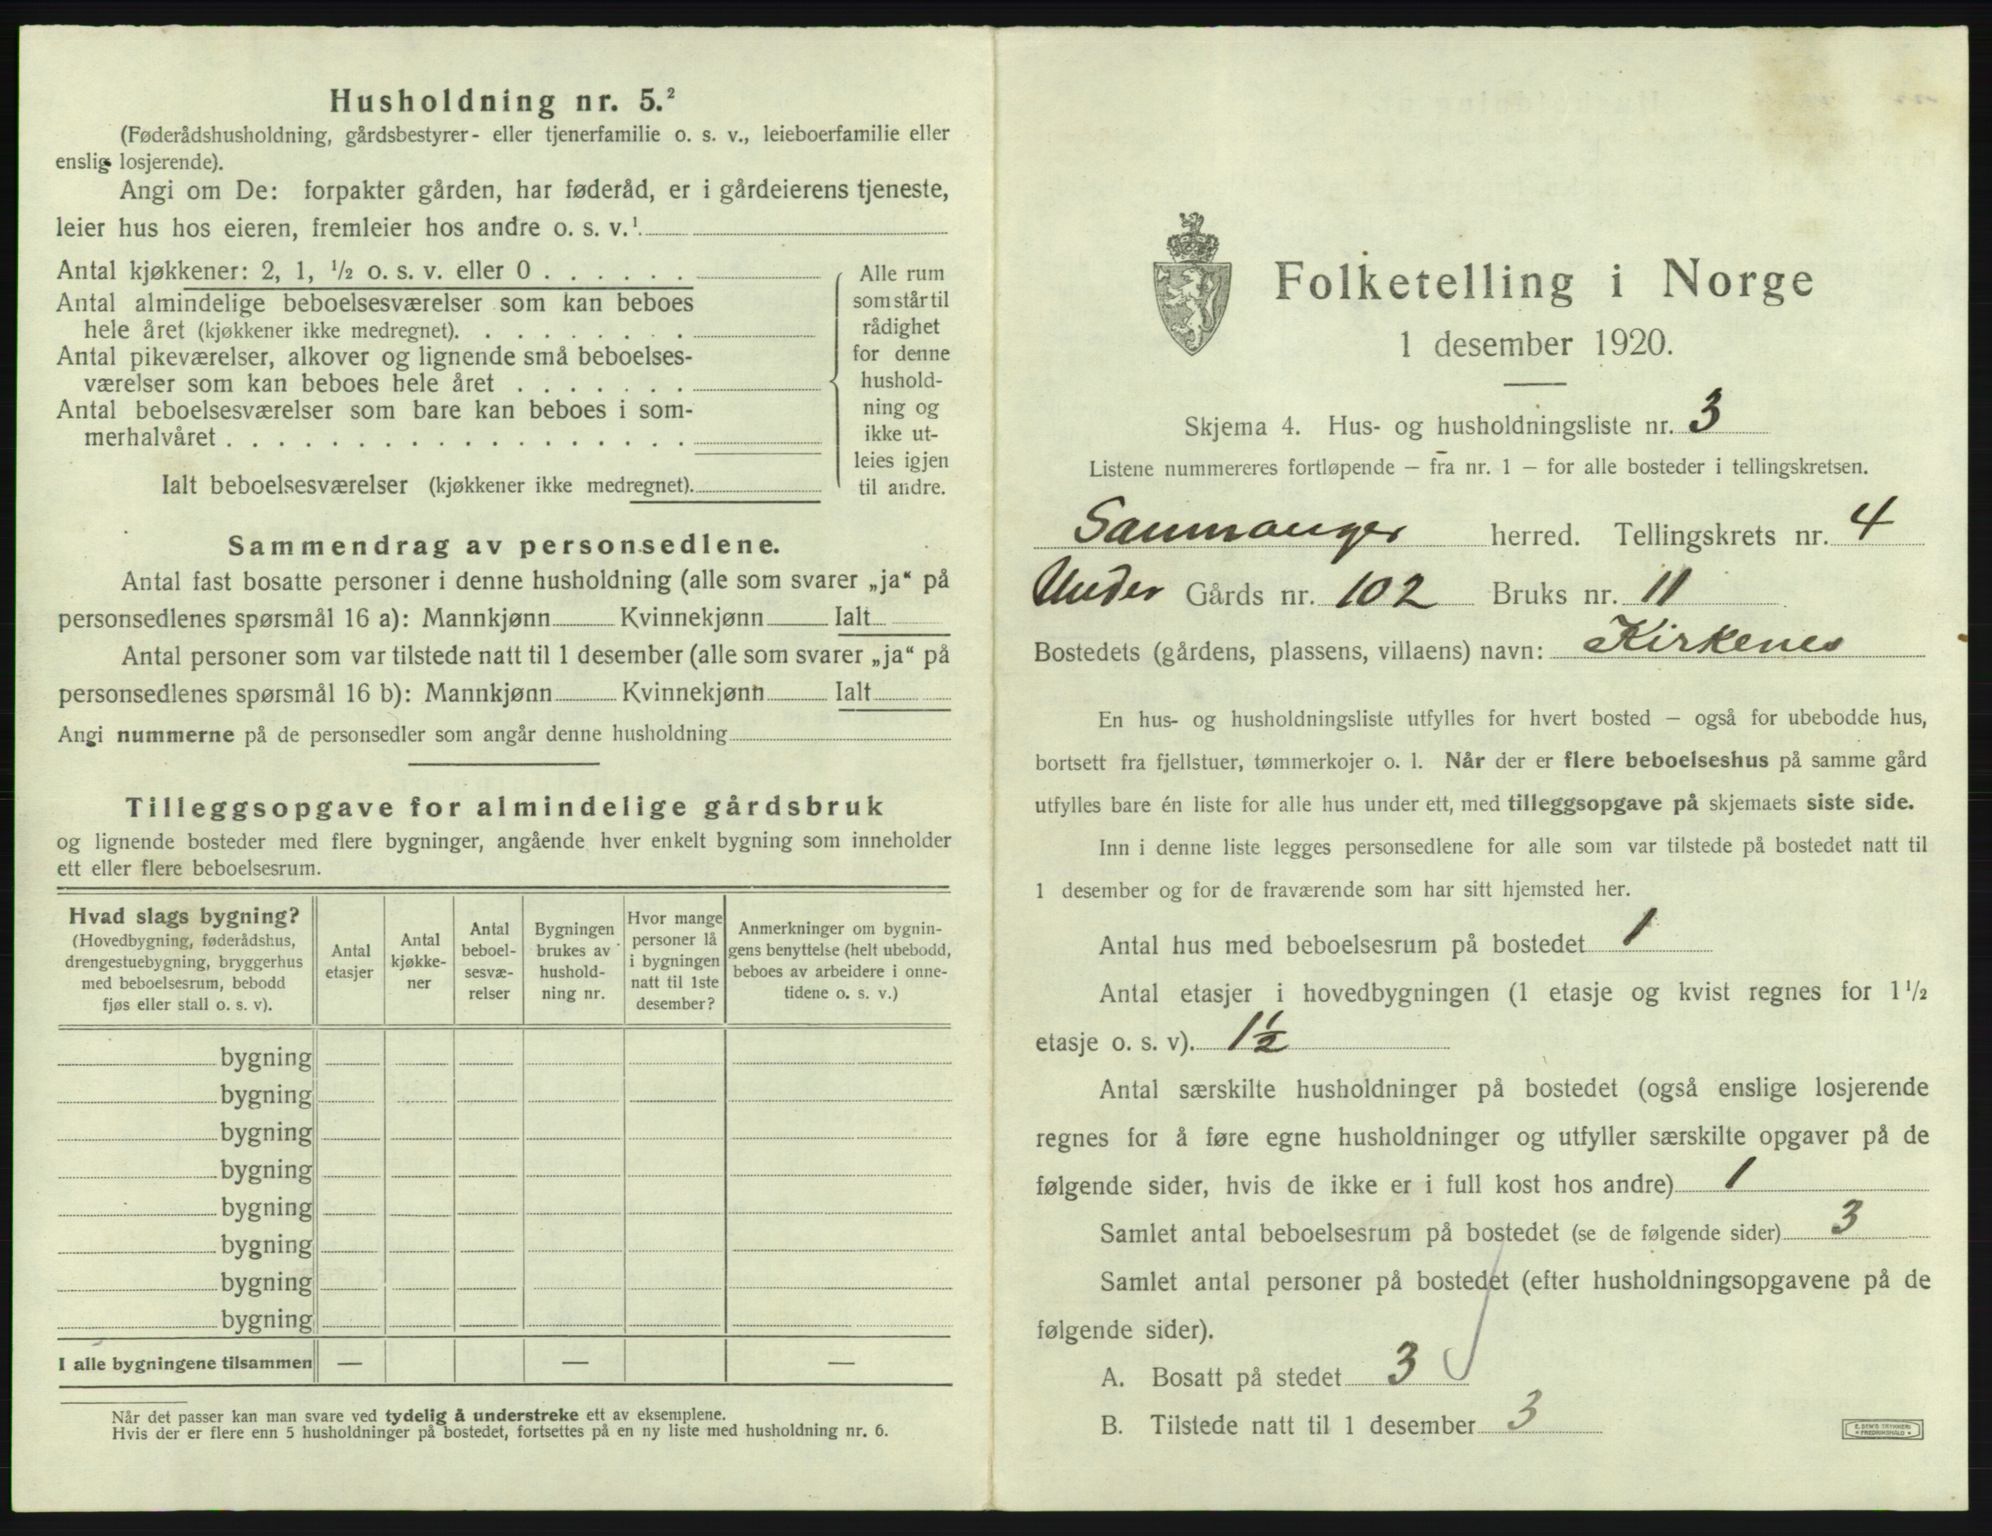 Husholdning nr. 5.²
(Føderådshusholdning, gårdsbestyrer- eller tjenerfamilie o. s. v., leieboerfamilie eller
enslig losjerende).
Angi om De: forpakter gården, har føderåd, er i gårdeierens tjeneste,
leier hus hos eieren, fremleier hos andre o. s. v.¹
Antal kjøkkener: 2, 1, ½ o. s. v. eller 0 . . . . . .
Antal almindelige beboelsesværelser som kan beboes
hele året (kjøkkener ikke medregnet). . . . . . . . .
Antal pikeværelser, alkover og lignende små beboelses-
værelser som kan beboes hele året . . . . . . .
Antal beboelsesværelser som bare kan beboes i som-
merhalvåret . . . . . . . . . . . . . . . . . .
Ialt beboelsesværelser (kjøkkener ikke medregnet).
Alle rum
som står til
rådighet
for denne
hushold-
ning og
ikke ut-
leies igjen
til andre.
Sammendrag av personsedlene.
Antal fast bosatte personer i denne husholdning (alle som svarer „ja“ på
personsedlenes spørsmål 16 a): Mannkjønn Kvinnekjønn Ialt
Antal personer som var tilstede natt til 1 desember (alle som svarer „ja“ på
personsedlenes spørsmål 16 b): Mannkjønn Kvinnekjønn Ialt
Angi nummerne på de personsedler som angår denne husholdning
Tilleggsopgave for almindelige gårdsbruk
og lignende bosteder med flere bygninger, angående hver enkelt bygning som inneholder
ett eller flere beboelsesrum.
Hvad slags bygning?
(Hovedbygning, føderådshus,
drengestuebygning, bryggerhus
med beboelsesrum, bebodd
fjøs eller stall o. s. v).
Antal
etasjer
Antal
kjøkke-
ner
Antal
beboel-
sesvæ-
relser
Bygningen
brukes av
hushold-
ning nr.
Hvor mange
personer lå
i bygningen
natt til 1ste
desember?
Anmerkninger om bygnin-
gens benyttelse (helt ubebodd,
beboes av arbeidere i onne-
tidene o. s. v.)
bygning
bygning
bygning
bygning
bygning
bygning
bygning
bygning
I alle bygningene tilsammen — — —
Når det passer kan man svare ved tydelig å understreke ett av eksemplene.
Hvis der er flere enn 5 husholdninger på bostedet, fortsettes på en ny liste med husholdning nr. 6.
Folketelling i Norge
1 desember 1920.
Skjema 4. Hus- og husholdningsliste nr. 3
Listene nummereres fortløpende — fra nr. 1 — for alle bosteder i tellingskretsen.
Samnanger herred. Tellingskrets nr. 4
Under Gårds nr. 102 Bruks nr. 11
Bostedets (gårdens, plassens, villaens) navn: Kirkenes
En hus- og husholdningsliste utfylles for hvert bosted — også for ubebodde hus,
bortsett fra fjellstuer, tømmerkojer o. l. Når der er flere beboelseshus på samme gård
utfylles bare én liste for alle hus under ett, med tilleggsopgave på skjemaets siste side.
Inn i denne liste legges personsedlene for alle som var tilstede på bostedet natt til
1 desember og for de fraværende som har sitt hjemsted her.
Antal hus med beboelsesrum på bostedet 1
Antal etasjer i hovedbygningen (1 etasje og kvist regnes for 1 ½
etasje o. s. v). 1½
Antal særskilte husholdninger på bostedet (også enslige losjerende
regnes for å føre egne husholdninger og utfyller særskilte opgaver på de
følgende sider, hvis de ikke er i full kost hos andre) 1
Samlet antal beboelsesrum på bostedet (se de følgende sider) 3
Samlet antal personer på bostedet (efter husholdningsopgavene på de
følgende sider).
A. Bosatt på stedet 3
B. Tilstede natt til 1 desember 3